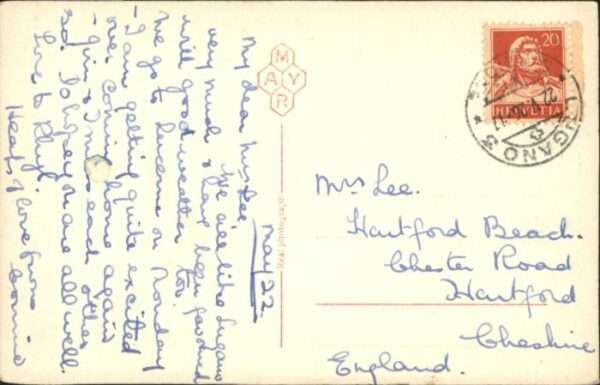 May 22.
My dear Mrs Lee,
We all like Lugano
very much & have been favoured
with good weather too.
We go to Lucerne on Monday
- I am getting quite excited
over coming home again
- Jim & I miss each other
so. Do hope you are all well.
Love to Phyl.
Heaps of love from
Connie
MAYR
Real photograph
20
HELVETIA
LUGANO 3
Mrs Lee.
Hartford Beach.
Chester Road
Hartford
Cheshire
England.